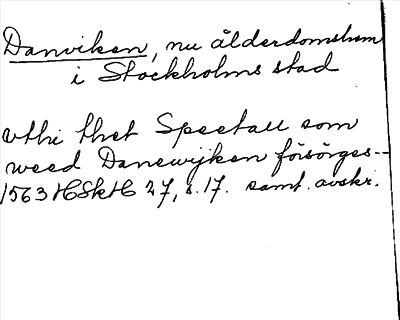 Danviken, nu ålderdomshem
i Stockholms stad
vthi thet Spectall som
weed Danewijken försörges--
1563 HSkH 27, s. 17. samt. avskr.